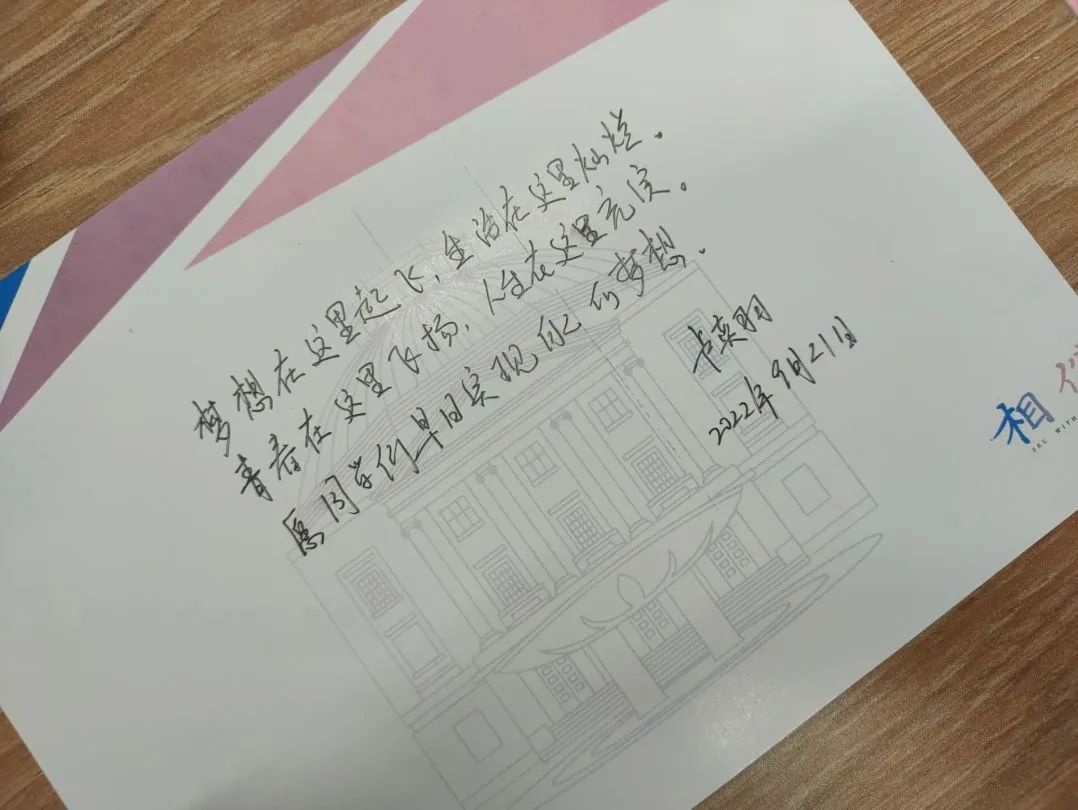 梦想在这里起飞,生活在这里灿烂.
青春在这里飞扬,人生在这里充实。
愿同学们早日实现自己的梦想.
卡奕羽
2022年9月21日
相信
SEU WITH